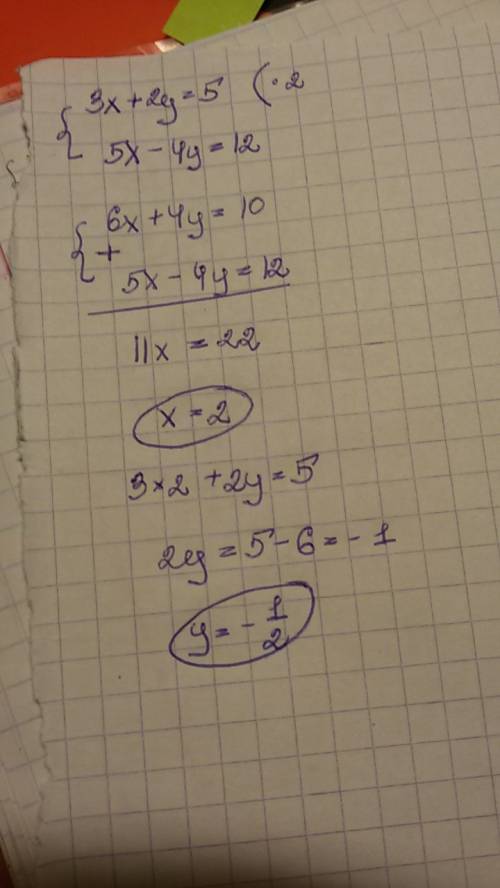 { 3x + 2y = 5 (· 2
5x - 4y = 12
{ 6x + 4y = 10
+
5x - 4y = 12
11x = 22
x = 2
3 × 2 + 2y = 5
2y = 5 - 6 = - 1
y = - 1/2